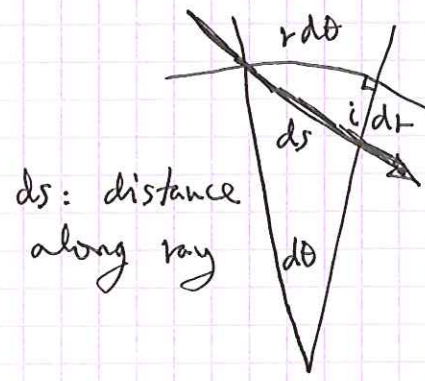 r dθ
i
dr
ds
ds: distance
along ray
dθ